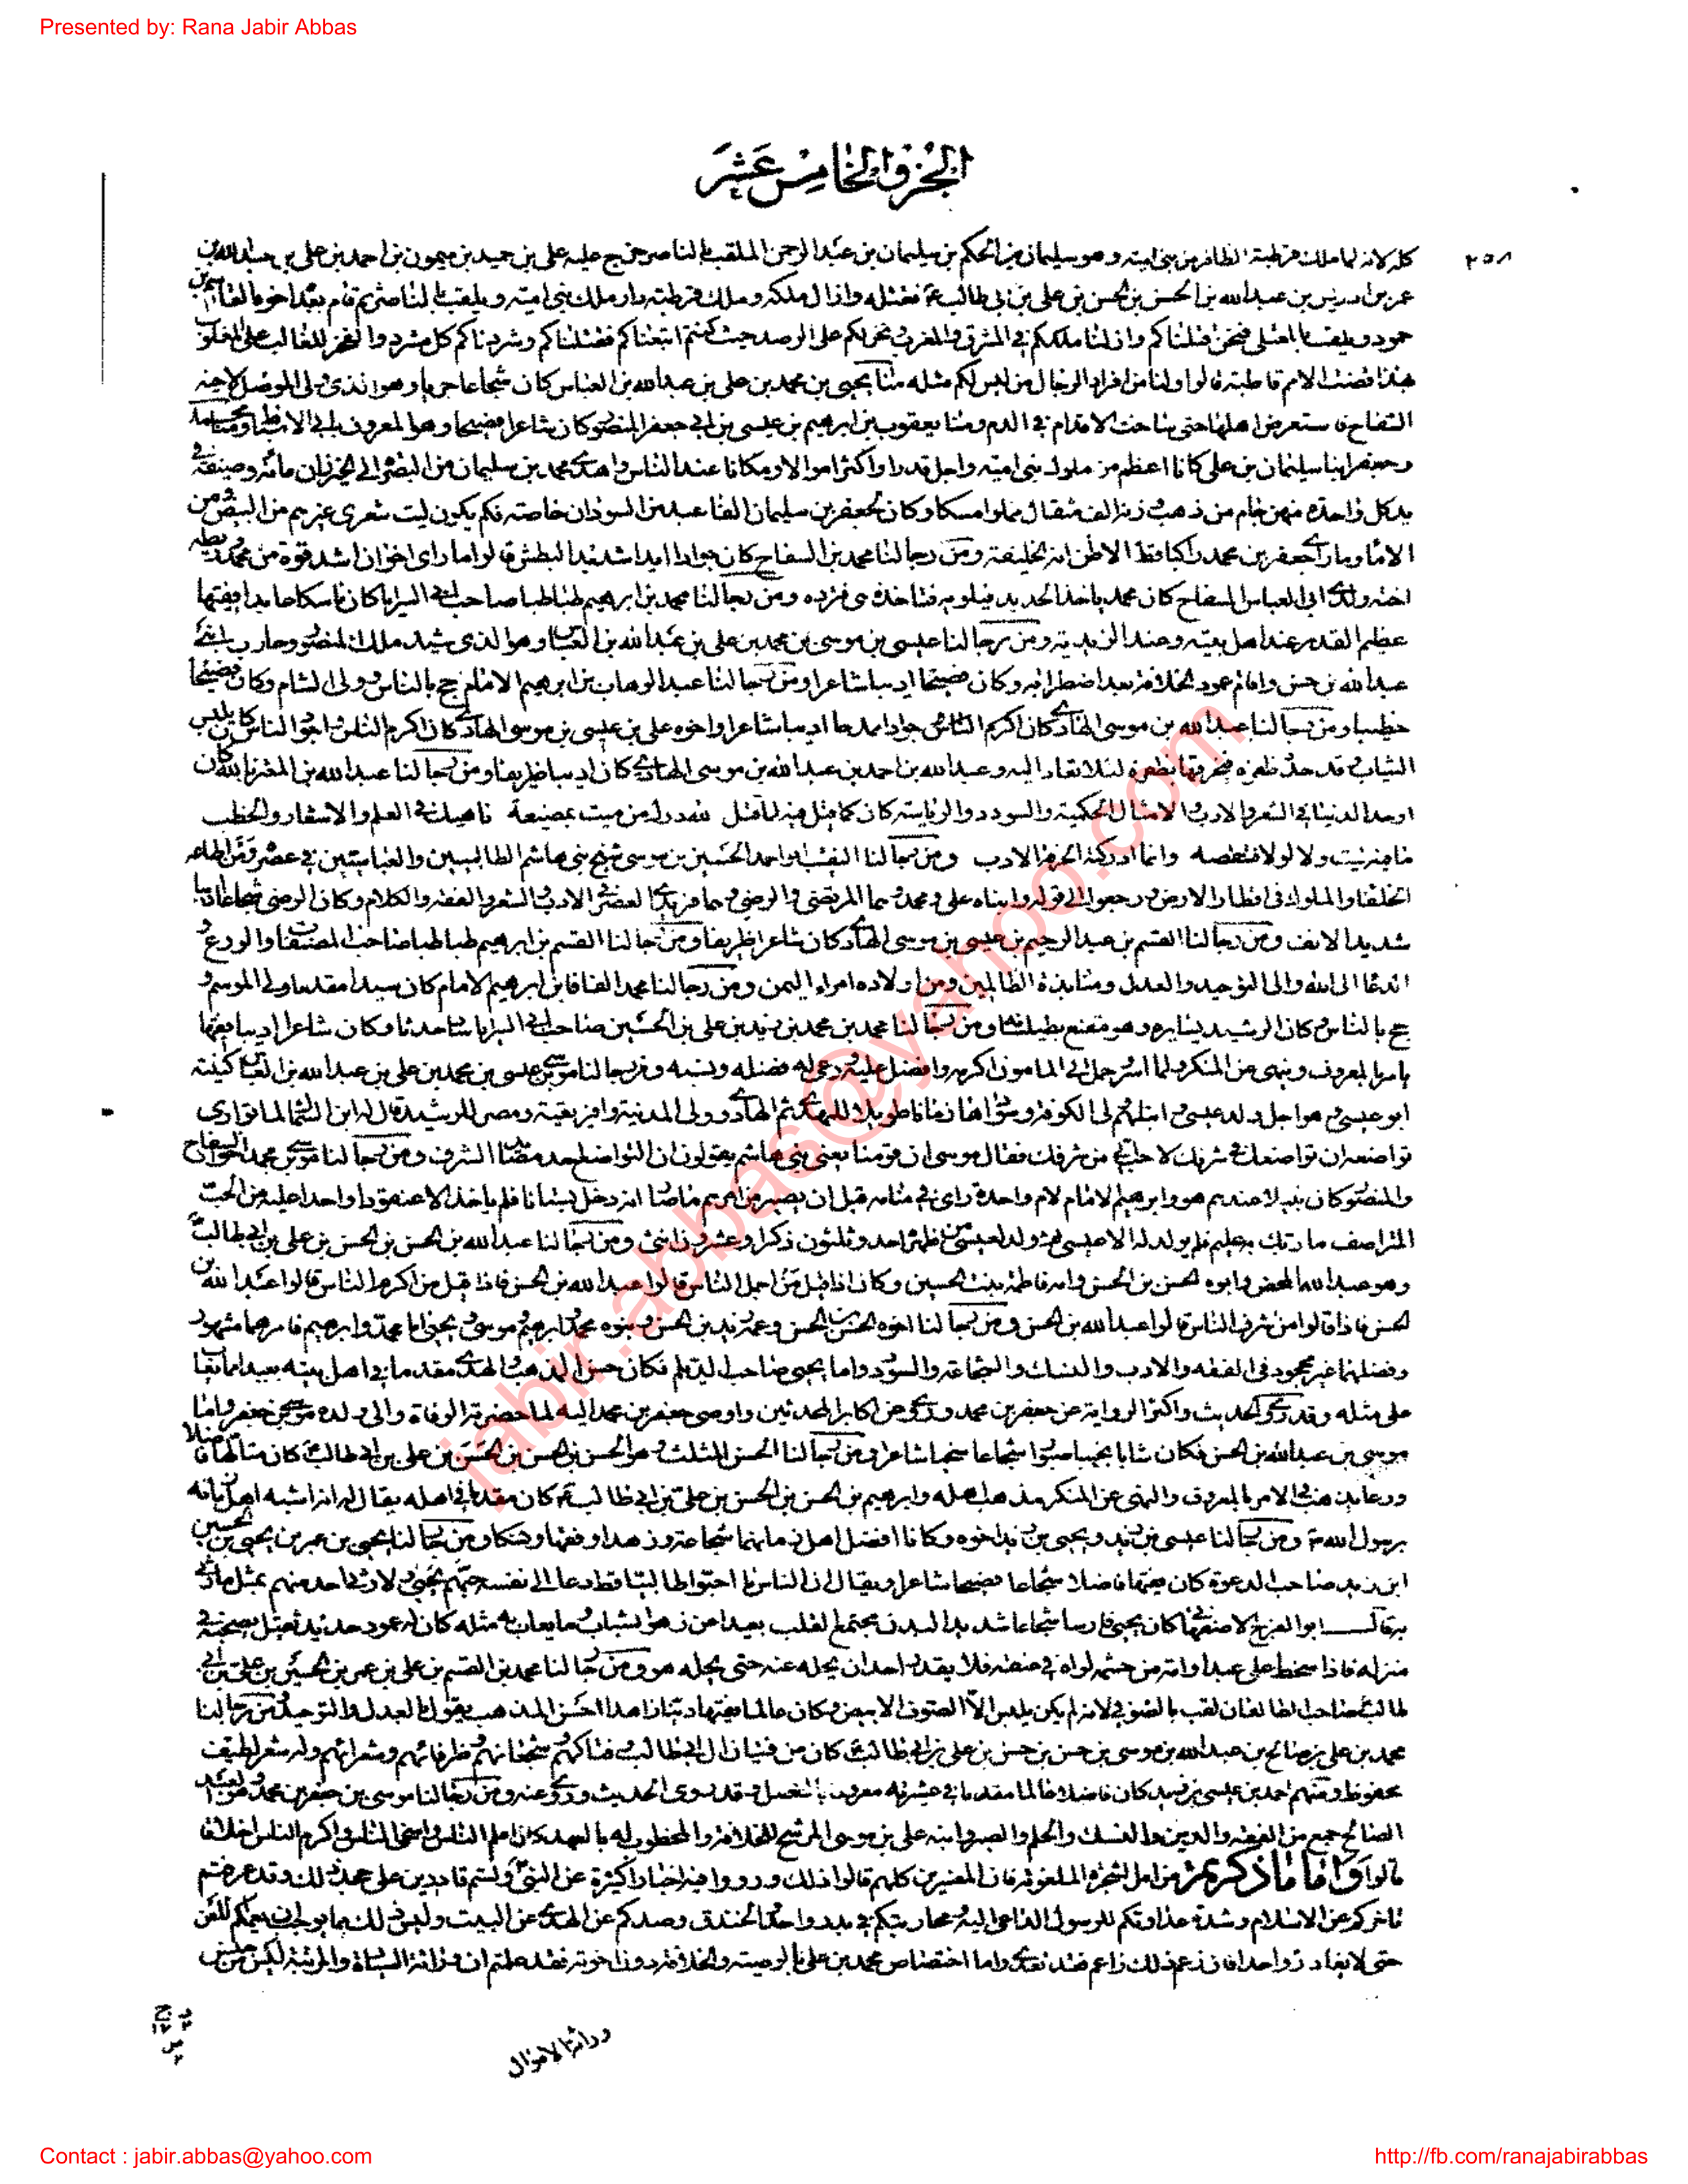 Presented by: Rana Jabir Abbas
الجزء الخامس عشر
٣٥٨
كله لانه لما ملك قرطبة الظافر من بنى امية وهو سليمان بن الحكم بن سليمان بن عبد الرحمن الملقب بالناصر خرج عليه على بن حميد بن ميمون بن احمد بن على بن عبد الله بن
عمر بن ادريس بن عبد الله بن الحسن بن الحسن بن على بن ابى طالب ع فقتله وازال ملكه وملك قرطبة دار ملك بنى امية ويلقب بالناصر ثم قام بعده اخوه القاسم بن
حمود ويلقب بالمعتلى فنحن قتلناكم وازلنا ملككم فى المشرق والمغرب ونحن لكم على الرصد حيث كنتم اتبعناكم فقتلناكم وشردناكم كل مشرد والفخر للغالب على المغلوب
بهذا قضت الامم قاطبة قالوا ولنا من افراد الرجال من ليس لكم مثله منا يحيى بن محمد بن على بن عبد الله بن العباس كان شجاعا جريا وهو الذى ولى الموصل لاخيه
السفاح فاستعرض اهلها حتى ساخت الاقدام فى الدم ومنا يعقوب بن ابراهيم بن عيسى بن ابى جعفر المنصور كان شاعرا فصيحا وهو المعروف بابى الاسباط ومنا محمد
وجعفر ابنا سليمان بن على كانا اعظم من ملوك بنى امية واجل قدرا واكثر اموالا ومكانا عند الناس واهدى محمد بن سليمان من البصرة الى الخيزران مائة وصيفة فى
يد كل واحدة منهن جام من ذهب وزنه الف مثقال مملوا مسكا وكان لجعفر بن سليمان الفا عبد من السودان خاصة فكم يكون ليت شعرى غيرهم من البيض ومن
الاماء وما رأى جعفر بن محمد راكبا قط الا ظن انه الخليفة ومن رجالنا محمد بن السفاح كان جوادا ايدا شديد البطش قالوا ما رأى اخوان اشد قوة من محمد وريطة
اخته ولدى ابى العباس السفاح كان محمد ياخذ الحديد فيلويه فتاخذه هى فترده ومن رجالنا محمد بن ابراهيم طباطبا صاحب ابى السرايا كان ناسكا عابدا فقيها
عظيم القدر عند اهل بيته وعند الزيدية ومن رجالنا عيسى بن موسى بن محمد بن على بن عبد الله بن العباس وهو الذى شيد ملك المنصور وحارب ابنى
عبد الله بن حسن واقام عمود الخلافة بعد اضطرابه وكان فصيحا اديبا شاعرا ومن رجالنا عبد الوهاب بن ابراهيم الامام حج بالناس وولى الشام وكان فصيحا
خطيبا ومن رجالنا عبد الله بن موسى الهادى كان اكرم الناس جوادا ممدحا اديبا شاعرا واخوه على بن عيسى بن موسى الهادى كان اكرم الناس واجود الناس كان يلبس
الثياب وقد حدد ظفره فيخرقها بظفره لئلا تعاد اليه وعبد الله بن احمد بن عبد الله بن موسى الهادى كان اديبا ظريفا ومن رجالنا عبد الله بن المعتز بالله كان
اوحد الدنيا فى الشعر والادب والامثال الحكمية والسودد والرياسة كان كما قيل فيه لما قتل لله درك من ميت بمضيعة ناهيك فى العلم والاشعار والخطب
ما فيه ليت ولا لولا فتنقصه وانما ادركته حرفة الادب ومن رجالنا النقيب ابو احمد الحسين بن موسى شيخ بنى هاشم الطالبيين والعباسيين فى عصره ومن اطاعه
الخلفاء والملوك فى اقطار الارض ورجعوا الى قوله وابناه على ومحمد وهما المرتضى والرضى وهما فريدا العصر فى الادب والشعر والفقه والكلام وكان الرضى شجاعا اديبا
شديد الانف ومن رجالنا القسم بن عبد الرحيم بن عيسى بن موسى الهادى كان شاعرا ظريفا ومن رجالنا القسم بن ابراهيم طباطبا صاحب المصنفات والورع و
الدعاء الى الله والى التوحيد والعدل ومنابذة الظالمين ومن اولاده امراء اليمن ومن رجالنا محمد الفافا بن ابراهيم الامام كان سيدا مقدما ولى الموسم و
حج بالناس وكان الرشيد يسايره وهو مقنع بطيلسانه ومن رجالنا محمد بن محمد بن زيد بن على بن الحسين صاحب ابى السرايا ساد حدثا وكان شاعرا اديبا فقيها
يامر بالمعروف وينهى عن المنكر ولما اسر وحمل الى المامون اكرمه وافضل عليه ورعى له فضله ونسبه ومن رجالنا موسى بن عيسى بن محمد بن على بن عبد الله بن العباس كنيته
ابو عيسى وهو اجل ولد عيسى وانبلهم ولى الكوفة وسوادها زمانا طويلا للمهدى ثم الهادى وولى المدينة وافريقية ومصر للرشيد قال له ابن السماك لما راى
تواضعه ان تواضعك فى شرفك لاحب الى من شرفك فقال موسى ان قومنا يعنى بنى هاشم يقولون ان التواضع احد مصائد الشرف ومن رجالنا موسى بن محمد اخو السفاح
والمنصور كان نبيلا عندهم هو وابراهيم الامام لام واحدة راى فى منامه قبل ان يصير من امرهم ما صار انه دخل بستانا فلم ياخذ الا عنقودا واحدا عليه من الحب
المتراصف ما ربك به عليم فلم يولد له الا عيسى ثم ولد لعيسى من ظهره احد وثلثون ذكرا وعشرون انثى ومن رجالنا عبد الله بن الحسن بن الحسن بن على بن ابى طالب
وهو عبد الله المحض وابوه الحسن بن الحسن وامه فاطمة بنت الحسين وكان اذا قيل من اجمل الناس قالوا عبد الله بن الحسن فاذا قيل من اكرم الناس قالوا عبد الله بن
الحسن فاذا قالوا من اشرف الناس قالوا عبد الله بن الحسن ومن رجالنا اخوه الحسن بن الحسن وعمه زيد بن الحسن وبنوه محمد وابراهيم وموسى ويحيى اما محمد وابراهيم فامرهما مشهور
وفضلهما غير مجحود فى الفقه والادب والنسك والشجاعة والسؤدد واما يحيى صاحب الديلم فكان حسن المذهب والهدى مقدما فى اهل بيته بعيدا مما يعاب
على مثله وقد روى الحديث واكثر الرواية عن جعفر بن محمد وروى عن اكابر المحدثين واوصى جعفر بن محمد اليه لما حضرته الوفاة والى ولده موسى بن جعفر واما
موسى بن عبد الله بن الحسن فكان شابا نجيبا صبورا شجاعا سخيا شاعرا ومن رجالنا الحسن المثلث وهو الحسن بن الحسن بن الحسن بن على بن ابى طالب ع كان متالها فاضلا
ورعا يذهب فى الامر بالمعروف والنهى عن المنكر مذهب اهله وابراهيم بن الحسن بن الحسن بن على بن ابى طالب ع كان مقدما فى اهله يقال انه اشبه اهل زمانه
برسول الله ص ومن رجالنا عيسى بن زيد ويحيى بن زيد اخوه وكانا افضل اهل زمانهما شجاعة وزهدا وفقها ونسكا ومن رجالنا يحيى بن عمر بن يحيى بن الحسين
ابن زيد صاحب الدعوة كان فقيها فاضلا شجاعا فصيحا شاعرا ويقال ان الناس ما احبوا طالبيا قط دعا الى نفسه حبهم يحيى ولا رثى احد منهم بمثل ما رثى
به قال ابو الفرج الاصفهانى كان يحيى فارسا شجاعا شديد البدن مجتمع القلب بعيدا من زهو الشباب وما يعاب به مثله كان له عمود حديد ثقيل يصحبه فى
منزله فاذا سخط على عبد او امة من حشمه لواه فى عنقه فلا يقدر احد ان يحله عنه حتى يحله هو ومن رجالنا محمد بن القسم بن على بن عمر بن الحسين بن على بن ابى
طالب صاحب الطالقان لقب بالصوفى لانه لم يكن يلبس الا الصوف الابيض وكان عالما فقيها دينا زاهدا حسن المذهب يقول بالعدل والتوحيد ومن رجالنا
محمد بن على بن صالح بن عبد الله بن موسى بن حسن بن حسن بن على بن ابى طالب ع كان من فتيان ال ابى طالب وفتاكهم وشجعانهم وظرفائهم وشعرائهم وله شعر لطيف
محفوظ ومنهم احمد بن عيسى بن زيد كان فاضلا عالما مقدما فى عشيرته معروفا بالفضل وقد روى الحديث وروى عنه ومن رجالنا موسى بن جعفر بن محمد وهو العبد
الصالح جمع من الفقه والدين والنسك والحلم والصبر وابنه على بن موسى المرشح للخلافة والمخطوب له بالعهد كان اعلم الناس واسخى الناس واكرم الناس اخلاقا
قالوا واما ما ذكرتم من امر الشجرة الملعونة فان المفسرين كلهم قالوا ذلك ورووا فيه اخبارا كثيرة عن النبى ولستم قادرين على جحد ذلك وقد عرفتم
تاخركم عن الاسلام وشدة عداوتكم للرسول الداعى اليه ومحاربتكم فى بدر واحد والخندق وصدكم عن الهدى عن البيت وليس ذلك مما يوجب ان يعمكم اللعن
حتى لا يغادر واحدا فان زعم ذلك زاعم فقد تعدى واما اختصاص محمد بن على بالوصية والخلافة دون اخوته فقد علمتم ان وراثة السيادة والمرتبة ليس من جنس
وراثة الاموال
jabir.abbas@yahoo.com
Contact : jabir.abbas@yahoo.com
http://fb.com/ranajabirabbas